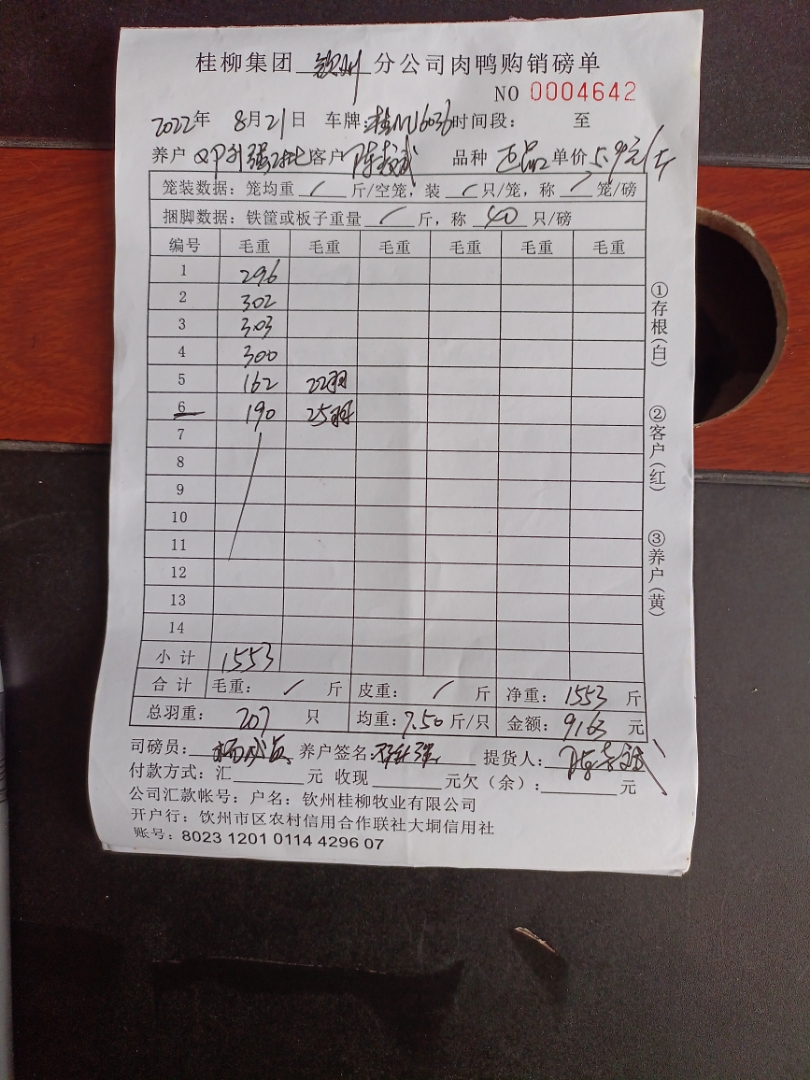 桂柳集团 钦州 分公司肉鸭购销磅单
NO 0004642
2022年 8月21日 车牌:桂N16036时间段: 至
养户 客户 陈 品种 正品 单价 5.9元/斤
笼装数据:笼均重 / 斤/空笼,装 / 只/笼,称 / 笼/磅
捆脚数据:铁筐或板子重量 / 斤,称 40 只/磅
编号 毛重 毛重 毛重 毛重 毛重 毛重
1 296
2 302
3 303
4 300
5 162 22羽
6 190 25羽
7
8
9
10
11
12
13
14
小计 1553
合计 毛重: / 斤 皮重: / 斤 净重: 1553 斤
总羽重: 207 只 均重: 7.50 斤/只 金额: 9163 元
司磅员: 养户签名: 提货人:
付款方式:汇 元 收现 元欠(余): 元
公司汇款帐号:户名:钦州桂柳牧业有限公司
开户行:钦州市区农村信用合作联社大垌信用社
账号:8023 1201 0114 4296 07
①存根(白)
②客户(红)
③养户(黄)